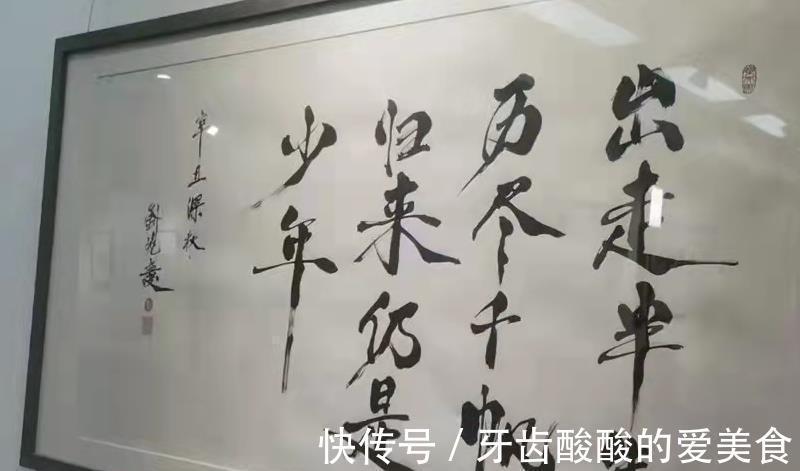 出走半
历尽千帆
归来仍是
少年
辛丑深秋
快传号 / 牙齿酸酸的爱美食